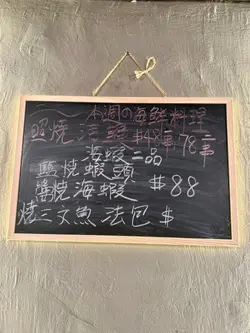 本週の海鮮料理
照燒汁鱿 $48串 78二串
海蝦二品
鹽燒蝦頭
醬燒海蝦 $88
燒三文魚法包 $